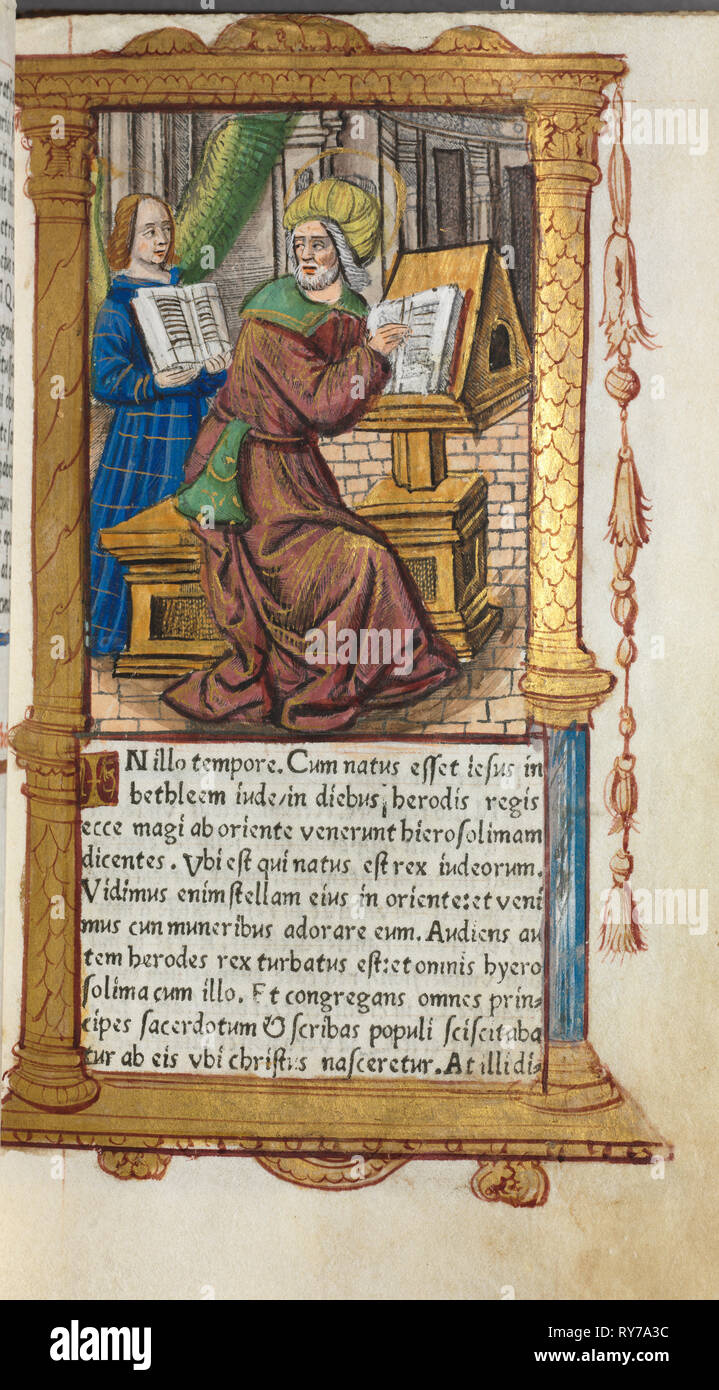 IN illo tempore. Cum natus esset iesus in
bethleem iude/in diebus herodis regis
ecce magi ab oriente venerunt hierosolimam
dicentes. Vbi est qui natus est rex iudeorum.
Vidimus enim stellam eius in oriente:et veni
mus cun muneribus adorare eum. Audiens au
tem herodes rex turbatus est:et omnis hyero
solima cum illo. Et congregans omnes prin-
cipes sacerdotum & scribas populi sciscitaba
tur ab eis vbi christus nasceretur. At illi di-
alamy
Image ID: RY7A3C
www.alamy.com